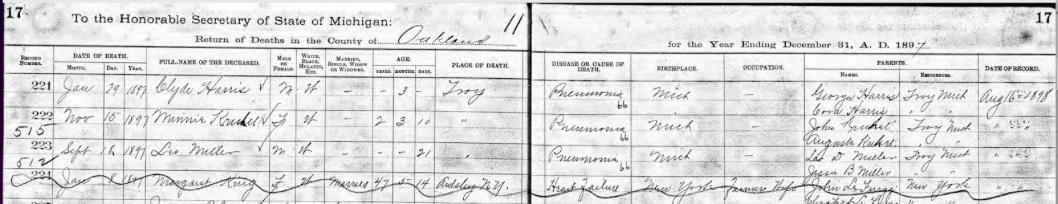 17 To the Honorable Secretary of State of Michigan: 11 17
Return of Deaths in the County of Oakland for the Year Ending December 31, A. D. 1897
RECORD NUMBER. DATE OF DEATH. MONTH. DAY. YEAR. FULL-NAME OF THE DECEASED. MALE OR FEMALE. WHITE, BLACK, MULATTO, ETC. MARRIED, SINGLE, WIDOW OR WIDOWER. AGE. YEARS. MONTHS. DAYS. PLACE OF DEATH. DISEASE OR CAUSE OF DEATH. BIRTHPLACE. OCCUPATION. PARENTS. NAMES. RESIDENCES. DATE OF RECORD.
221 Jan 29 1897 Clyde Harris M W - - 3 - Troy Pneumonia 66 Mich - George Harris Troy Mich Aug 15 1898
Cora Harris " "
222 Nov 15 1897 Minnie F W - 2 3 10 " Pneumonia 66 Mich - John Troy Mich " "
515 Augusta
223 Sept 18 1897 Leo Miller M W - - - 21 " Pneumonia 66 Mich - D Miller Troy Mich " "
512 B Miller
224 Jan 8 1897 Margaret King F W Married 47 5 14 Ardsley N.Y. Heart Failure New York Farmers Wife John New York " "